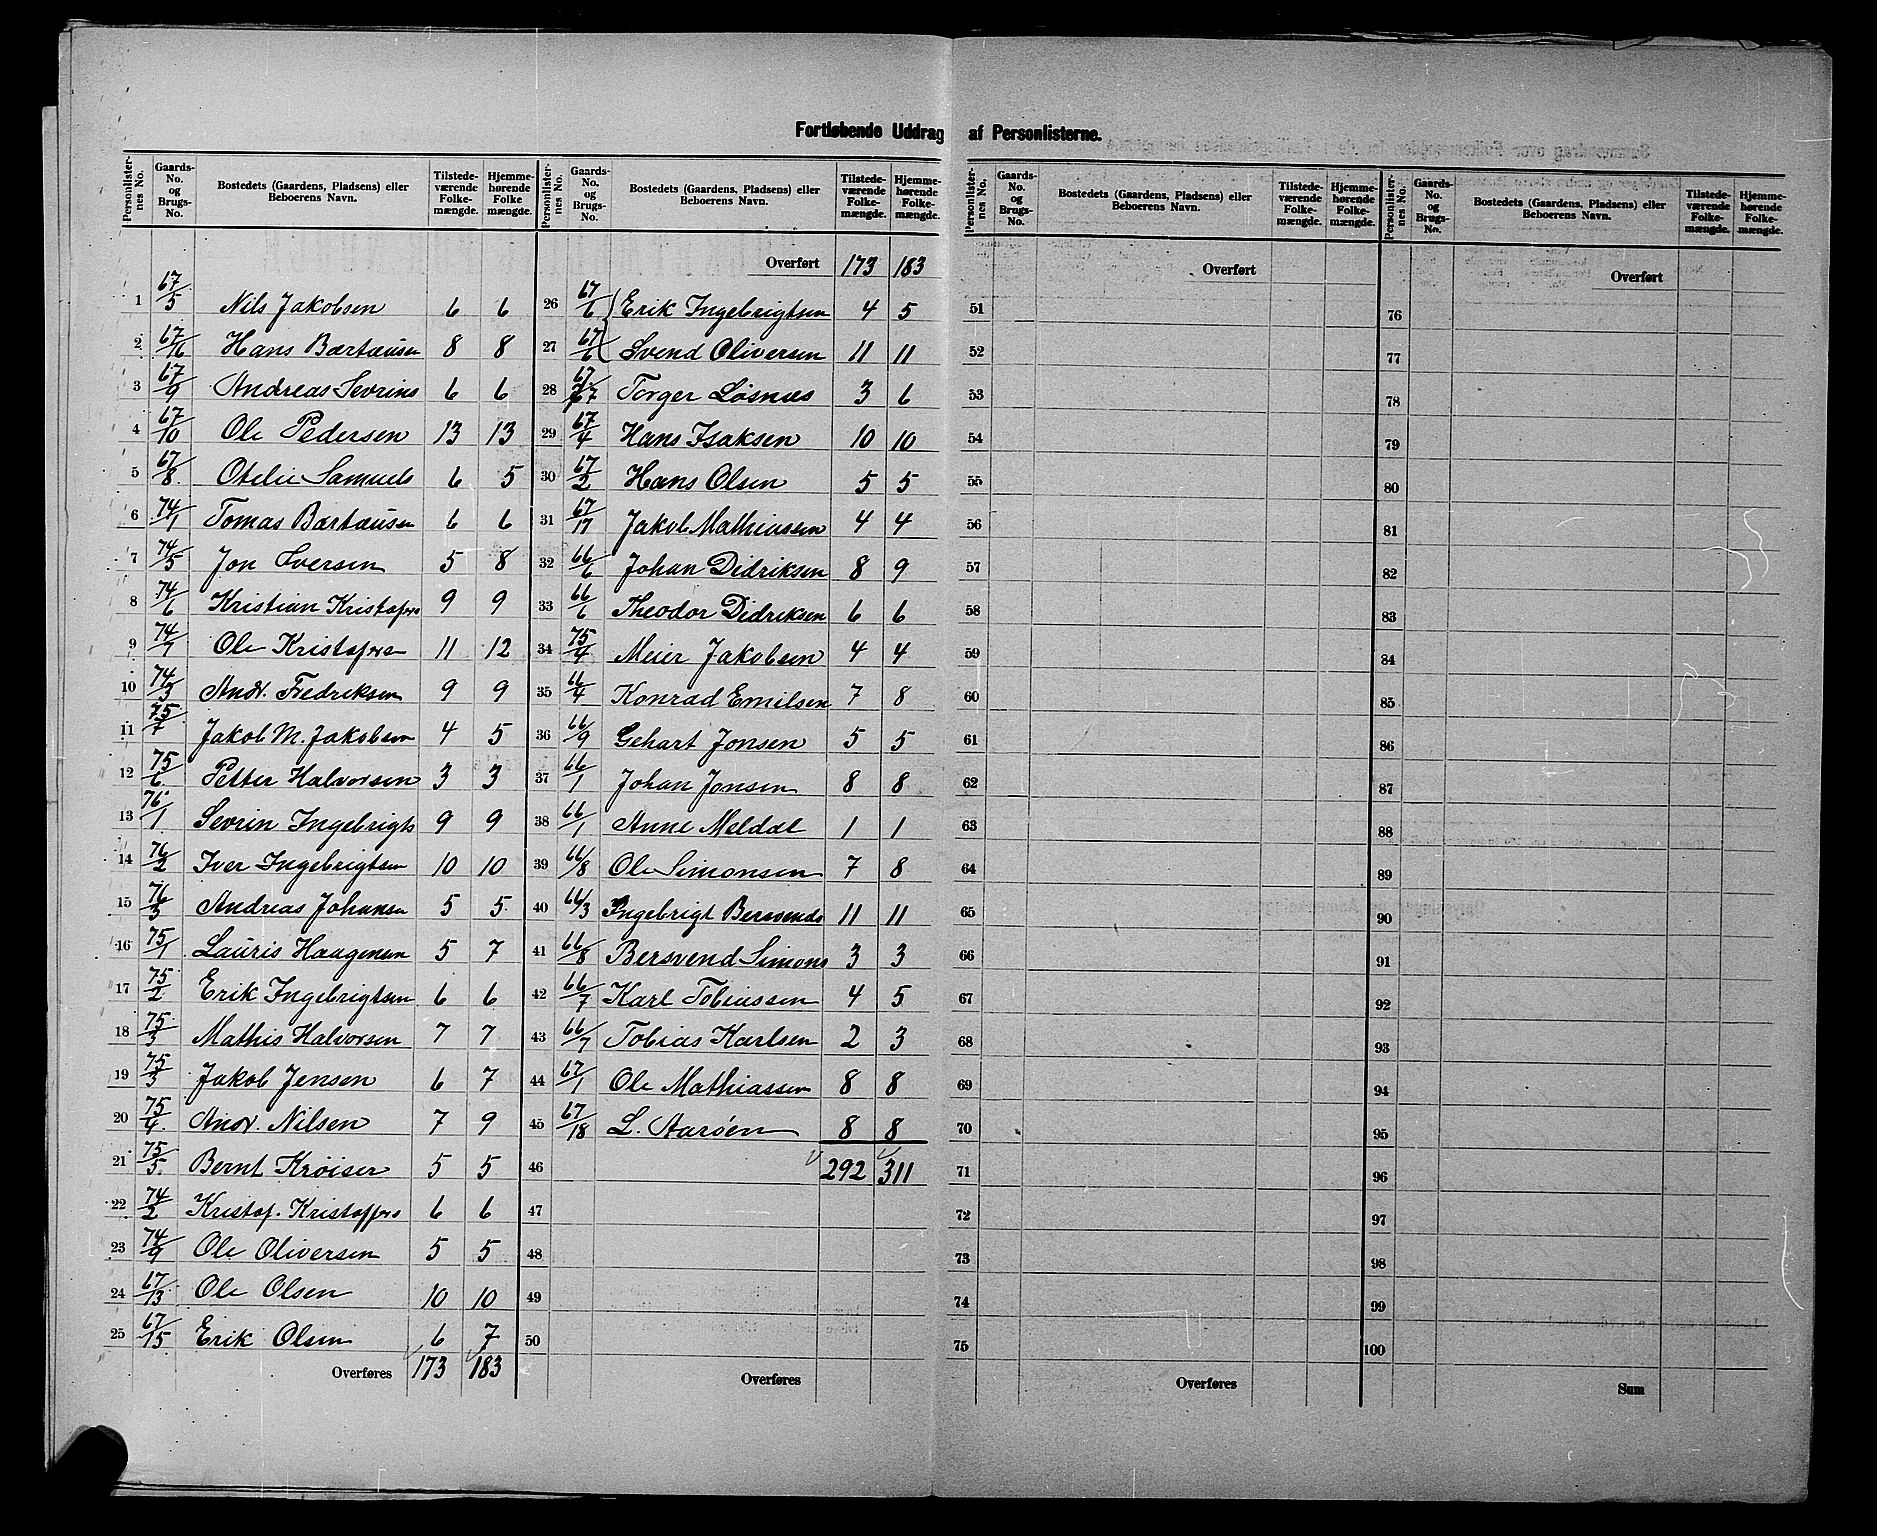 Fortløbende Uddrag af Personlisterne.
Personlisternes No. | Gaards-No. og Brugs-No. | Bostedets (Gaardens, Pladsens) eller Beboerens Navn. | Tilstedeværende Folkemængde. | Hjemmehørende Folkemængde.
1 67/5 Nils Jakobsen 6 6
2 67/16 Hans Bærtæusen 8 8
3 67/9 Andreas Sevrins 6 6
4 67/10 Ole Pedersen 13 13
5 67/8 Otelie Samuels 6 5
6 74/1 Tomas Bærtæusen 6 6
7 74/5 Jon Iversen 5 8
8 74/6 Kristian Kristofers 9 9
9 74/7 Ole Kristofers 11 12
10 74/3 Andr. Fredriksen 9 9
11 75/7 Jakob M. Jakobsen 4 5
12 75/6 Petter Halvorsen 3 3
13 76/1 Sevrin Ingebrigts 9 9
14 76/2 Iver Ingebrigtsen 10 10
15 76/3 Andreas Johansen 5 5
16 75/1 Lauris Haagensen 5 7
17 75/2 Erik Ingebrigtsen 6 6
18 75/3 Mathis Halvorsen 7 7
19 75/3 Jakob Jensen 6 7
20 75/4 Andr. Nilsen 7 9
21 75/5 Bernt Krøiser 5 5
22 74/2 Kristof. Kristoffers 6 6
23 74/9 Ole Oliversen 5 5
24 67/13 Ole Olsen 10 10
25 67/15 Erik Olsen 6 7
Overføres 173 183
Personlisternes No. | Gaards-No. og Brugs-No. | Bostedets (Gaardens, Pladsens) eller Beboerens Navn. | Tilstedeværende Folkemængde. | Hjemmehørende Folkemængde.
Overført 173 183
26 67/6 Erik Ingebrigtsen 4 5
27 67/6 Svend Oliversen 11 11
28 67/7 Torger Løsnæs 3 6
29 67/4 Hans Isaksen 10 10
30 67/2 Hans Olsen 5 5
31 67/17 Jakob Mathiassen 4 4
32 66/6 Johan Didriksen 8 9
33 66/6 Theodor Didriksen 6 6
34 75/4 Meier Jakobsen 4 4
35 66/4 Konrad Emilsen 7 8
36 66/9 Gehart Jonsen 5 5
37 66/1 Johan Jonsen 8 8
38 66/1 Anne Meldal 1 1
39 66/8 Ole Simonsen 7 8
40 66/3 Ingebrigt Bersvends 11 11
41 66/8 Bersvend Simons 3 3
42 66/7 Karl Tobiassen 4 5
43 66/7 Tobias Karlsen 2 3
44 67/1 Ole Mathiassen 8 8
45 67/18 L. Aarøen 8 8
46 292 311
47
48
49
50
Overføres
Personlisternes No. | Gaards-No. og Brugs-No. | Bostedets (Gaardens, Pladsens) eller Beboerens Navn. | Tilstedeværende Folkemængde. | Hjemmehørende Folkemængde.
Overført
51
52
53
54
55
56
57
58
59
60
61
62
63
64
65
66
67
68
69
70
71
72
73
74
75
Overføres
Personlisternes No. | Gaards-No. og Brugs-No. | Bostedets (Gaardens, Pladsens) eller Beboerens Navn. | Tilstedeværende Folkemængde. | Hjemmehørende Folkemængde.
Overført
76
77
78
79
80
81
82
83
84
85
86
87
88
89
90
91
92
93
94
95
96
97
98
99
100
Sum